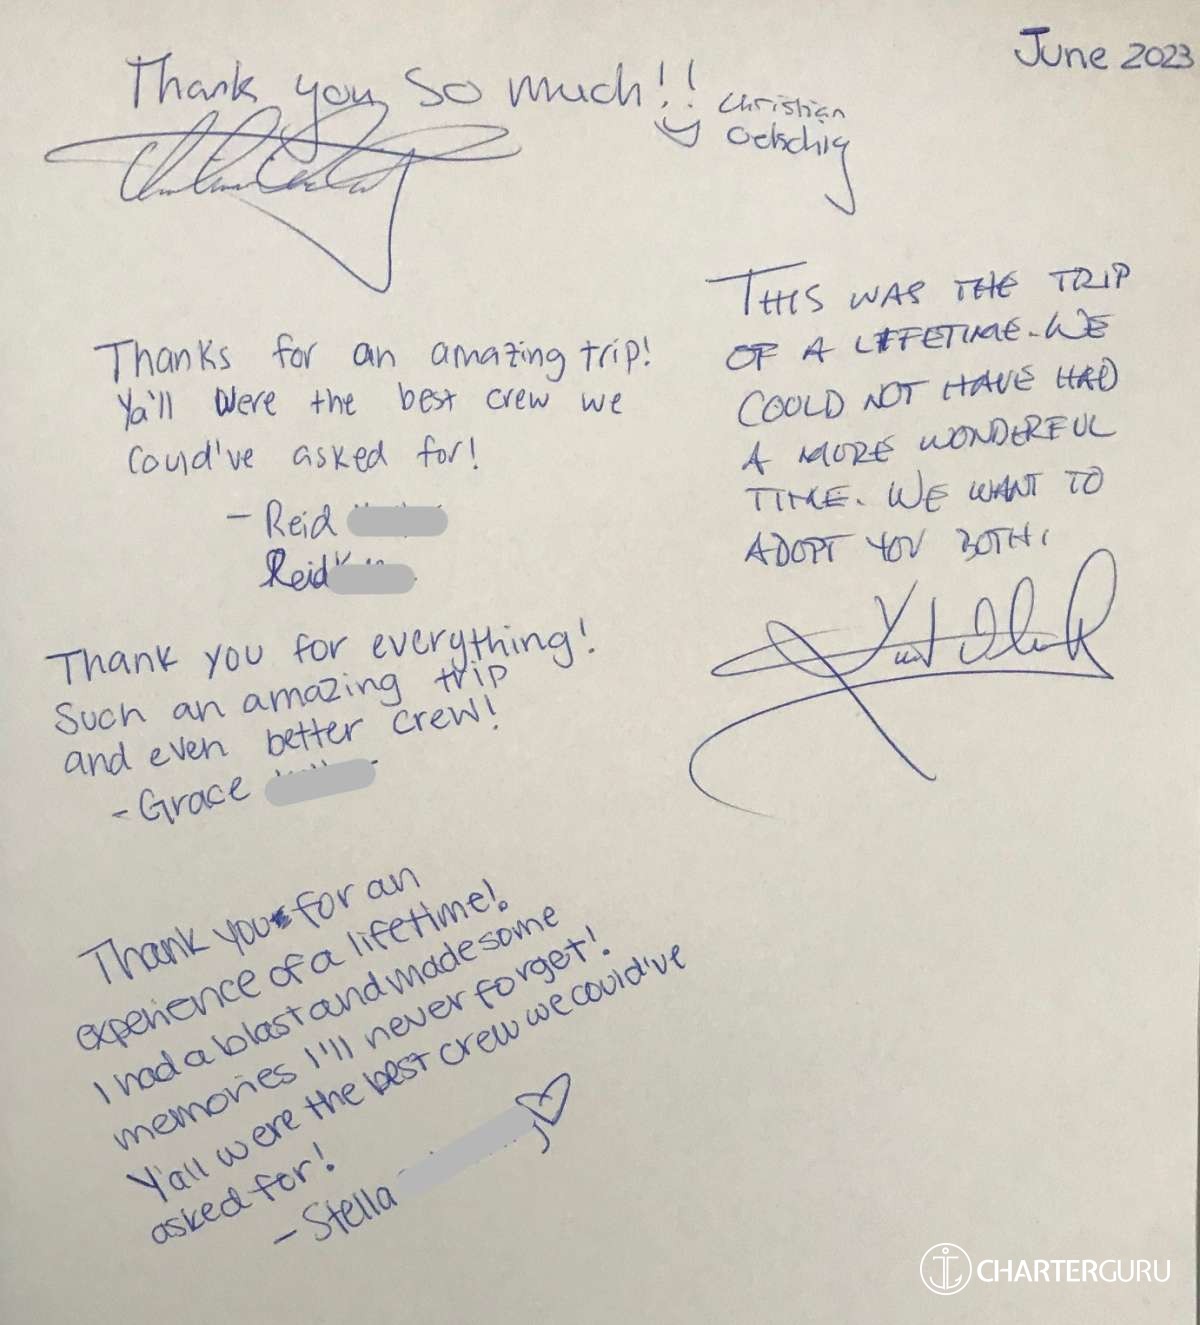 June 2023
Thank you so much!!
Christian
Oelschig
Thanks for an amazing trip!
Ya'll were the best crew we
could've asked for!
- Reid
Reid
Thank you for everything!
Such an amazing trip
and even better crew!
- Grace
THIS WAS THE TRIP
OF A LIFETIME. WE
COULD NOT HAVE HAD
A MORE WONDERFUL
TIME. WE WANT TO
ADOPT YOU BOTH!
Thank you for an
experience of a lifetime!
I had a blast and made some
memories I'll never forget!
Y'all were the best crew we could've
asked for!
- Stella
CHARTERGURU